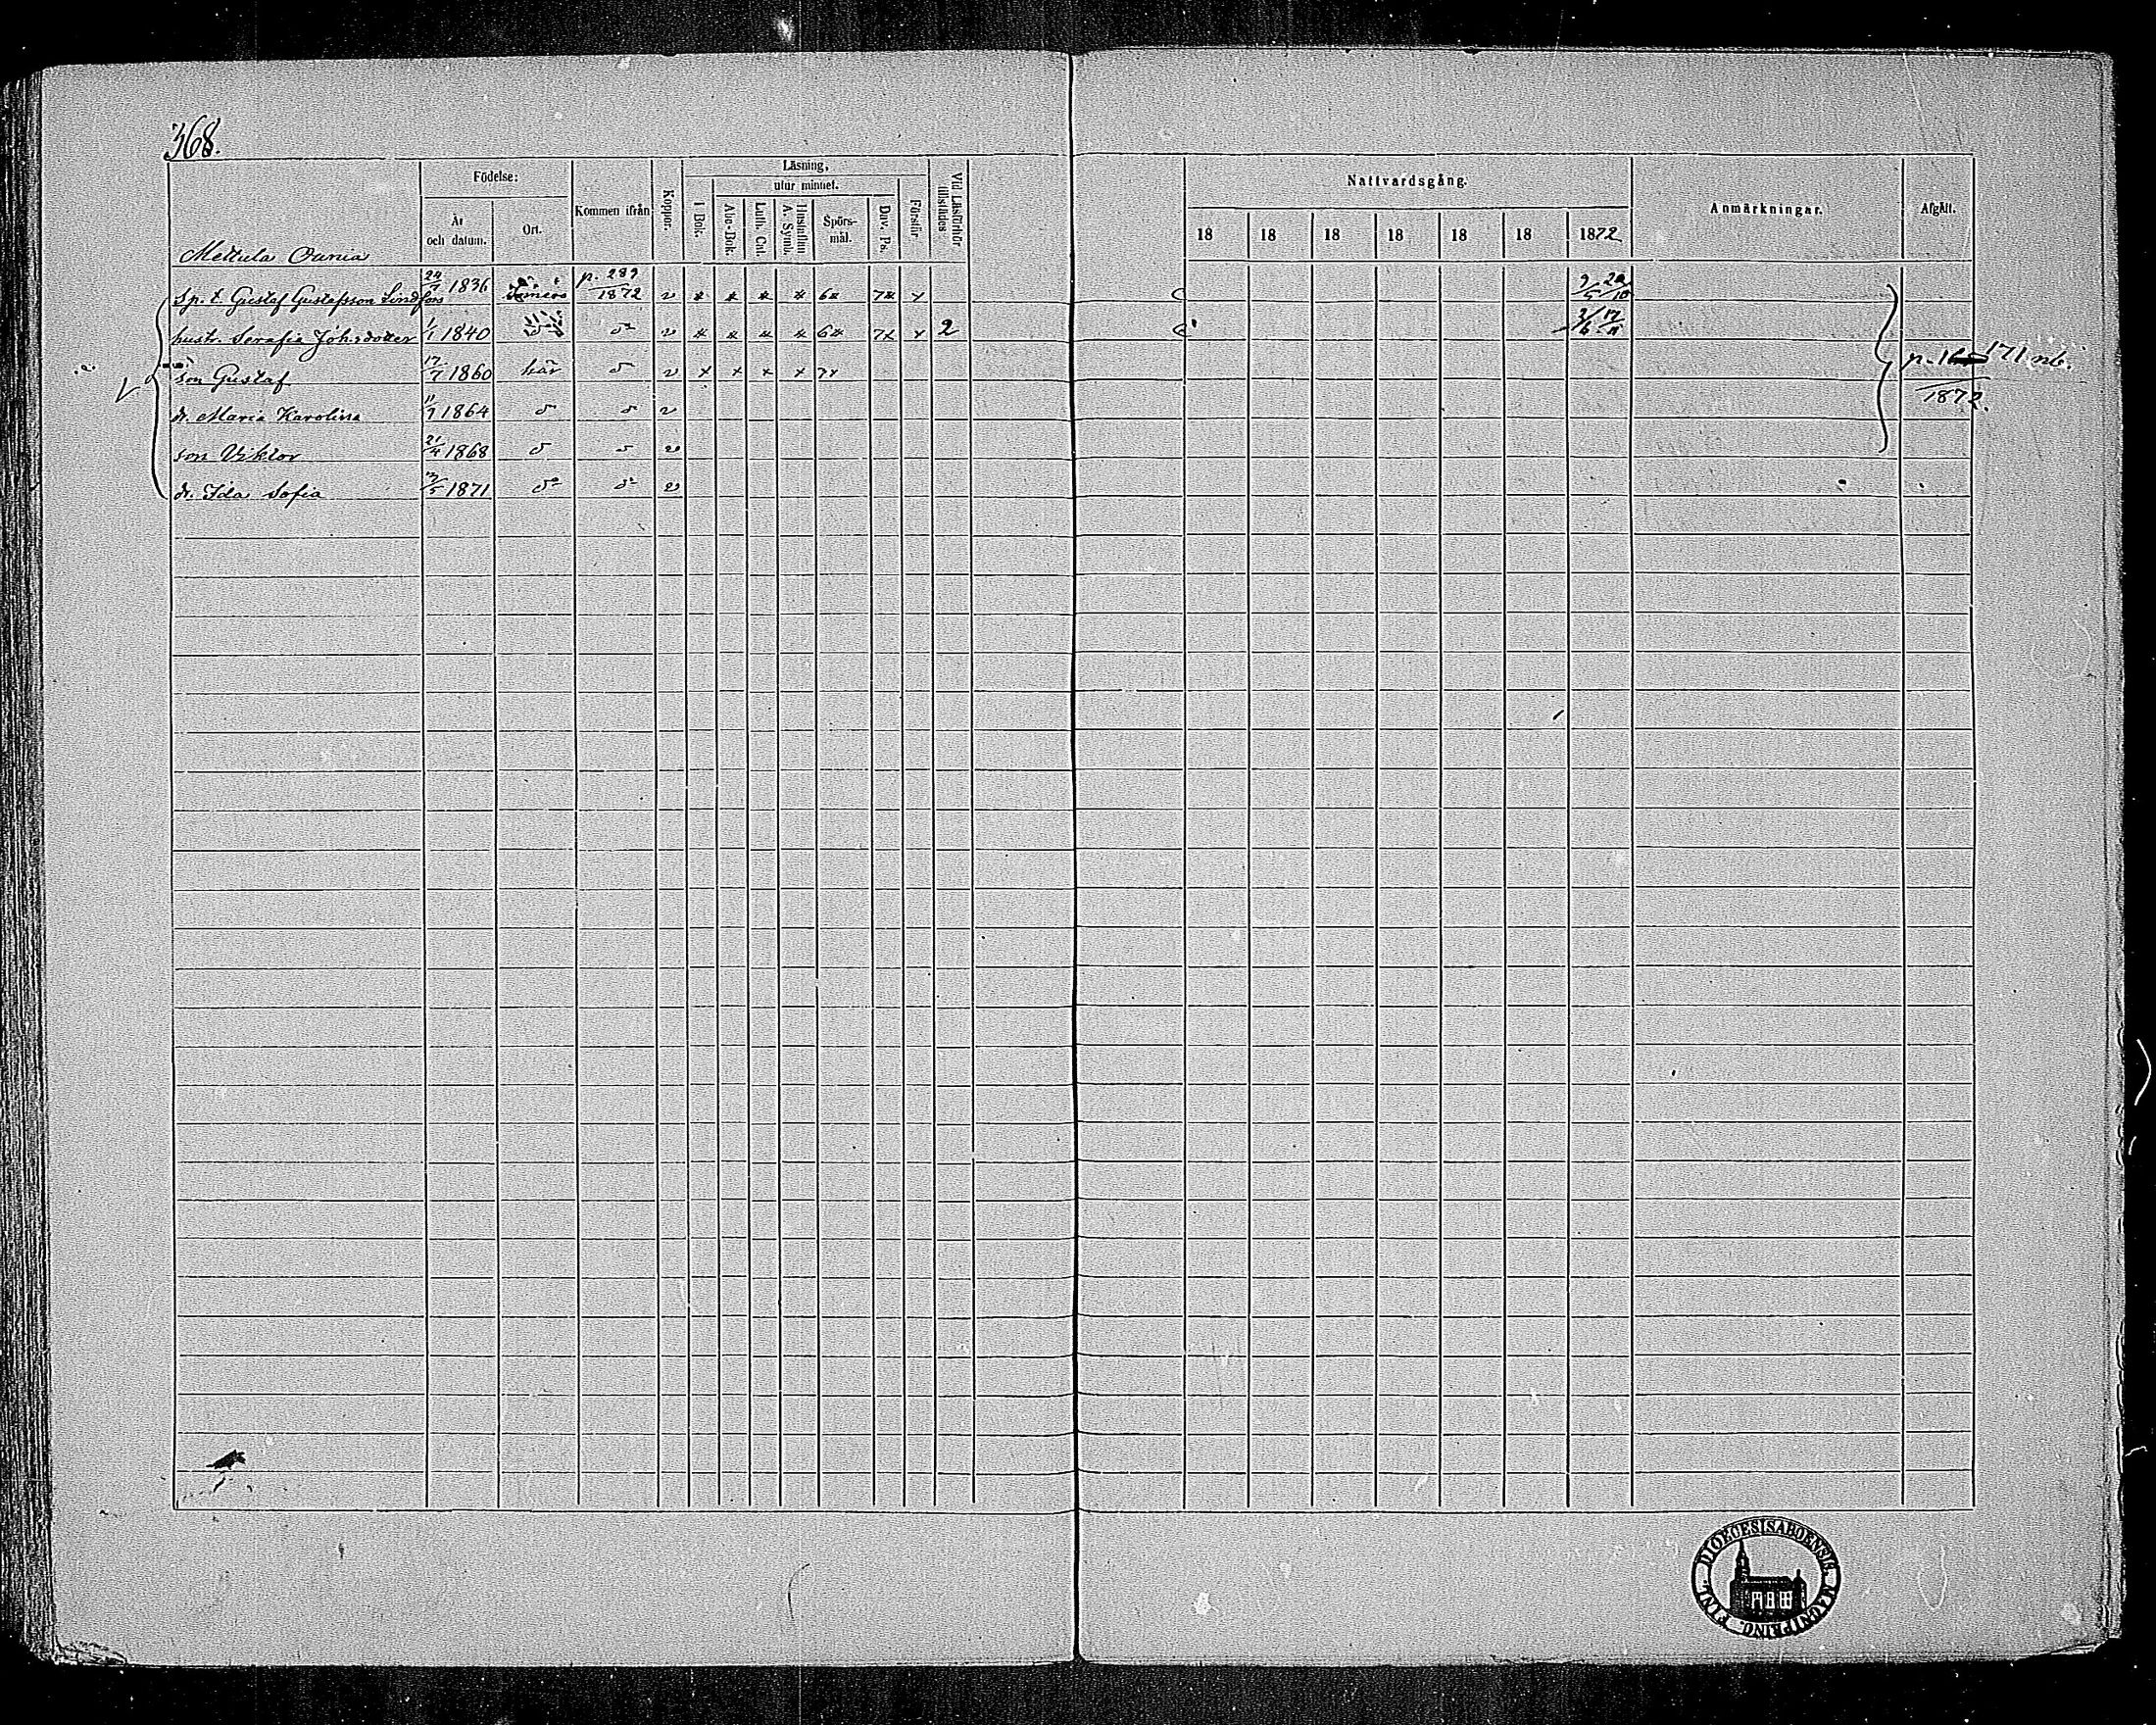 368.
Födelse:
Läsning,
utur minnet.
Nattvardsgång.
Anmärkningar.
Afgått.
År och datum.
Ort.
Kommen ifrån
Koppor.
I Bok.
Abc-Bok.
Luth. Cat.
Hustaflan A. Symb.
Spörs-mål.
Dav. Ps.
Förstår
Vid Läsförhör tillstädes
18 18 18 18 18 18 1872
Mettula Ounia
Sp. t. Gustaf Gustafsson Lindfors 24/7 1836 p. 289/1872 v x x x x 6x 7x x
hustr. Serafia Joh:sdotter 1/1 1840 v x x x x 6x 7x x 2
son Gustaf 17/7 1860 här v x x x x
p. 171 nb.
1872.
dr. Maria Karolina 11/7 1864 v
son Viktor 21/4 1868 v
dr. Ida Sofia 1871 v
DIOECESIS ABOENSIS. MAGNI PRINC. FINL.